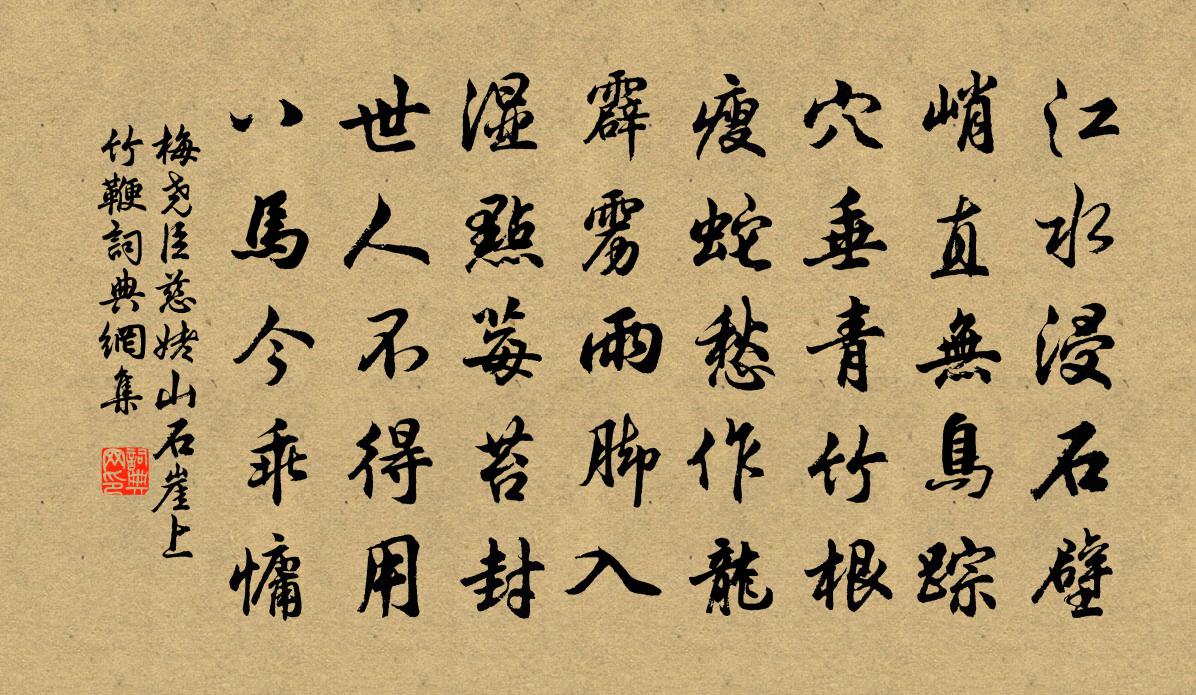 江水浸石壁
峭直無鳥踪
穴垂青竹根
瘦蛇愁作龍
霹雳雨脚入
湿點莓苔封
世人不得用
八馬今乖慵
梅尧臣慈姥山石崖上
竹鞭詞典網集
詞典网印